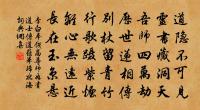 道隱不可見
靈書藏洞天
吾師四萬劫
歷世遞相傳
別杖留青竹
行歌躡紫煙
離心無遠近
長在玉京懸
李白奉餞高尊師如貴
道士傳道籙畢歸北海
詞典網集